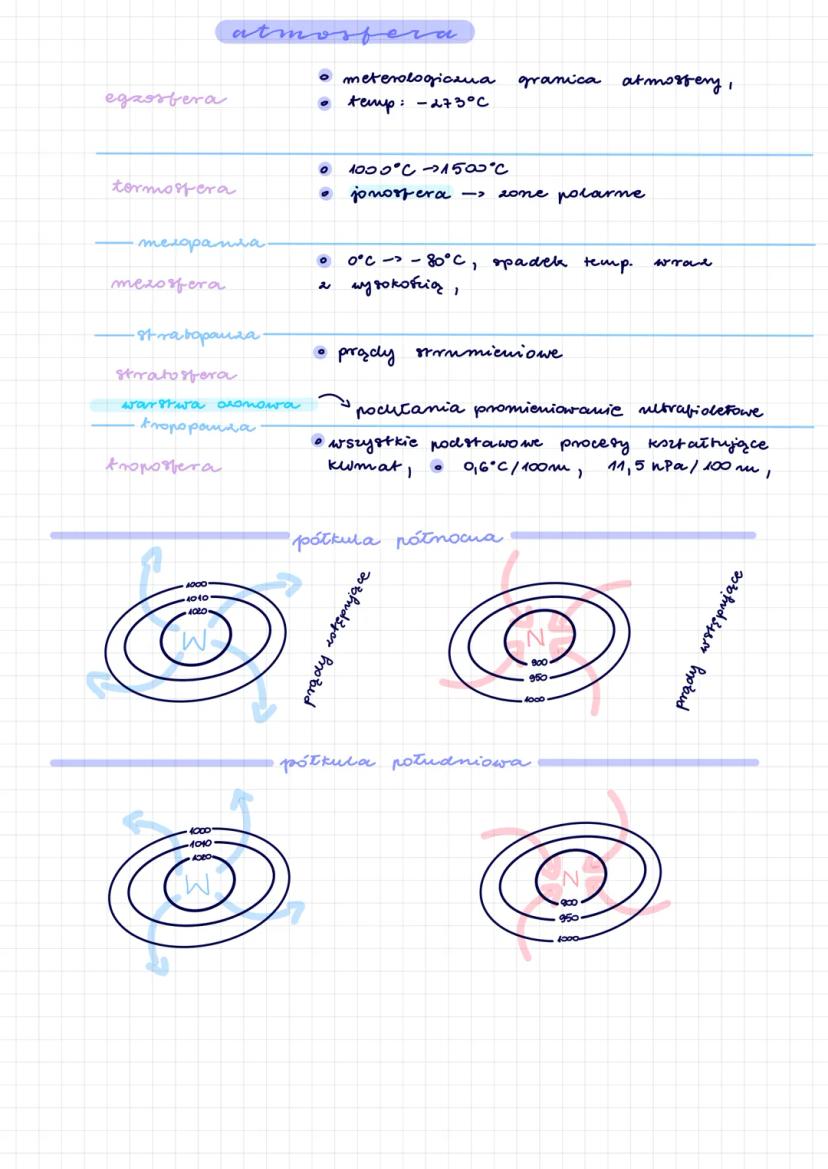 atmosfera
egzosfera
• meterologiczna granica atmosfery,
• temp: -273°C
termosfera
• 1000°C → 1500°C
• jonosfera → zorze polarne
mezopauza
mezosfera
• 0°C → -80°C, spadek temp. wraz
z wysokością,
stratopauza
stratosfera
• prądy strumieniowe
warstwa ozonowa
pochłania promieniowanie ultrafioletowe
tropopauza
troposfera
• wszystkie podstawowe procesy kształtujące
klimat, • 0,6°C/100m, 11,5 hPa/100m,
półkula północna
1000
1010
1020
W
prądy zstępujące
N
900
950
1000
prądy wstępujące
półkula południowa
1000
1010
1020
W
N
900
950
1000